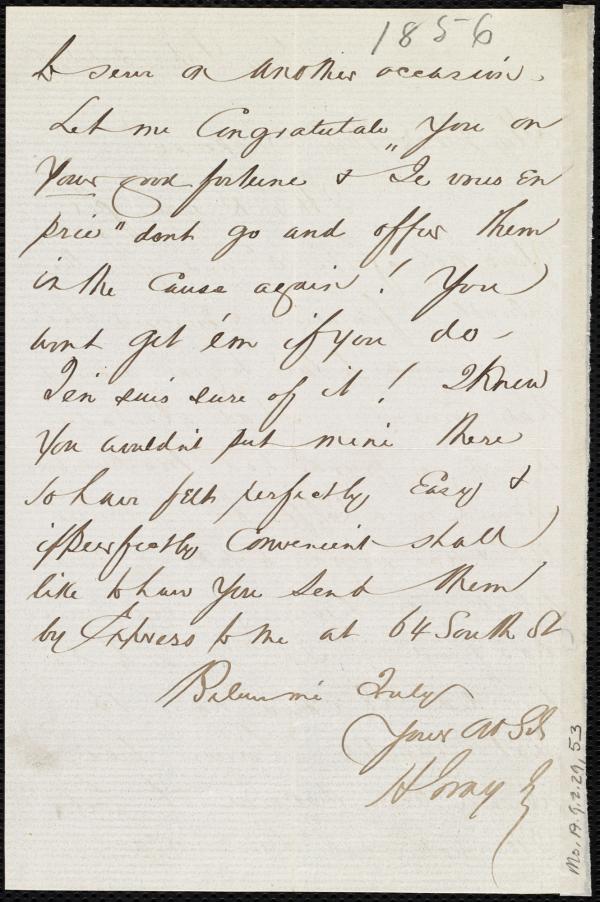 1856
to serve on another occasion.
Let me Congratulate you on
Your good fortune & "Je vous en
prie" dont go and offer them
in the Cause again! You
wont get 'em if you do -
J'en suis sure of it! I knew
You wouldn't put mine there
so have felt perfectly Easy &
if perfectly Convenient shall
like to have You send them
by Express to me at 64 South St
Believe me Truly
Yours
H Gray Jr
Ms. A.9.2.29, 53